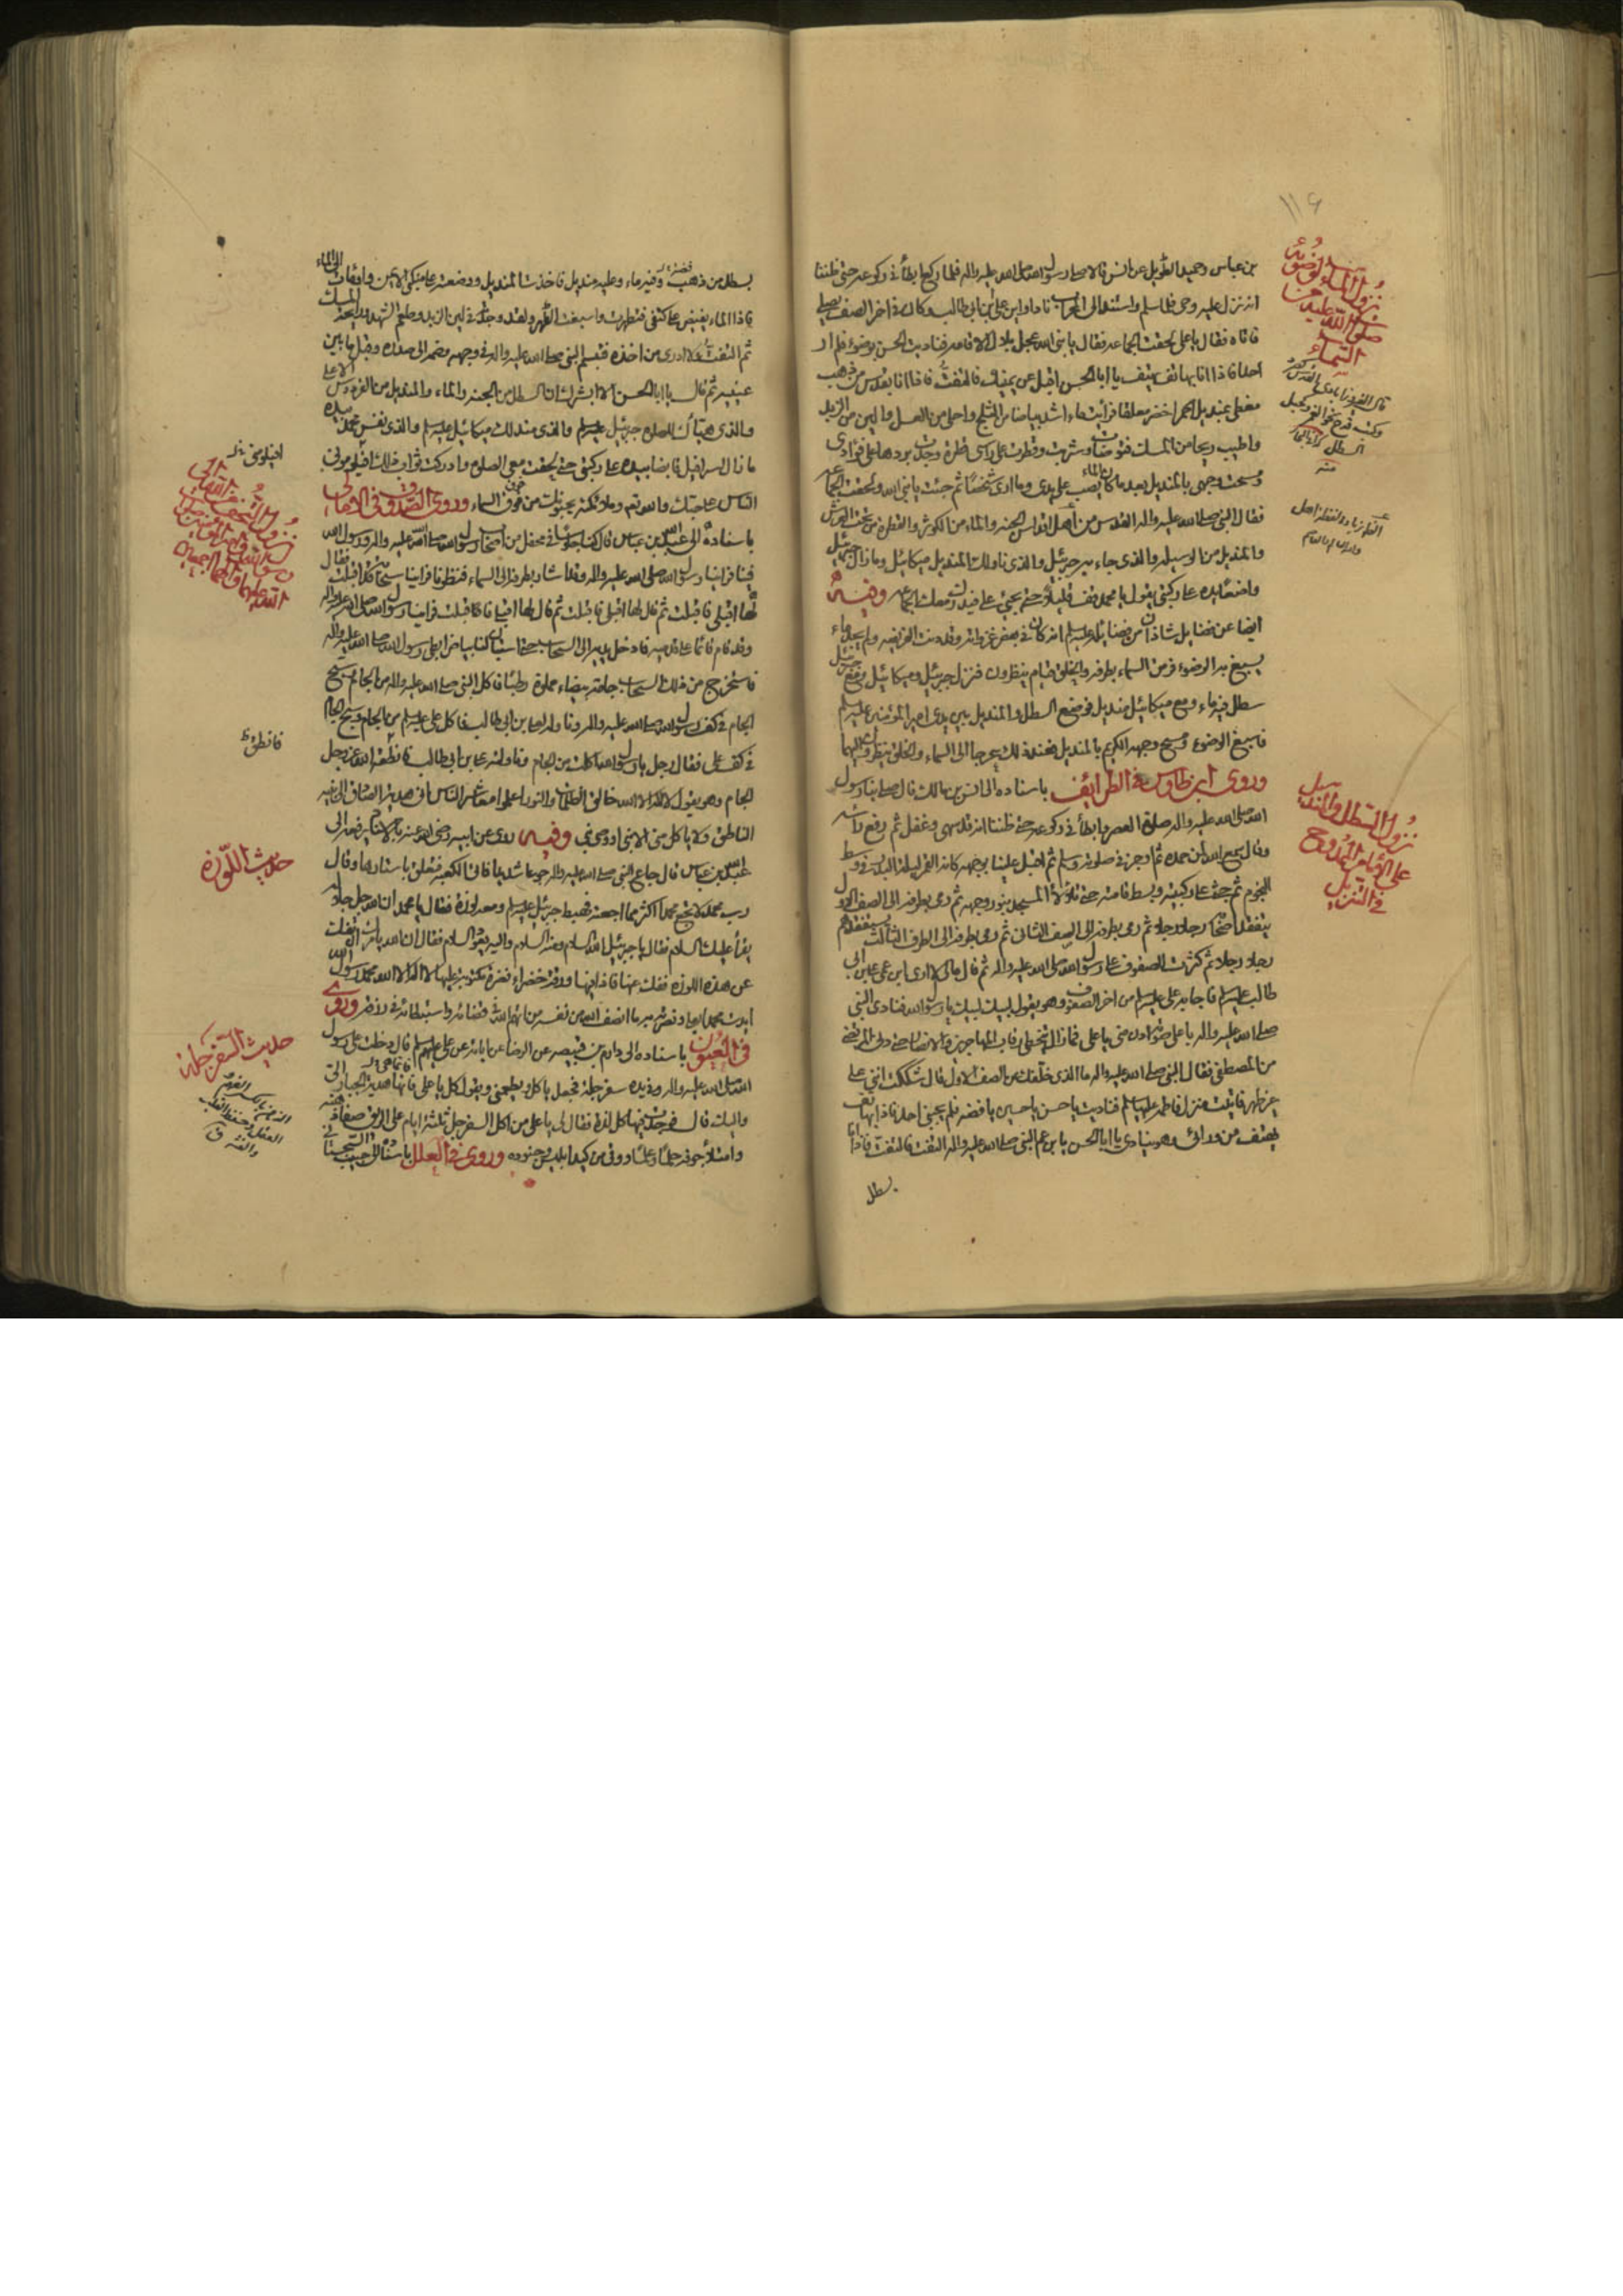 ١١٤
بن عباس وحميد الطويل عن انس قالا صلى رسول الله صلى الله عليه واله فلما ركع ابطأ في ركوعه حتى ظننا
انه نزل عليه وحي فلما سلم واستند الى المحراب نادى اين علي بن ابي طالب وكان في اخر الصف يصلي
فاتاه فقال يا علي لحقت الجماعة فقال يا نبي الله عجل بلال الاقامة فناديت الحسن بوضوء فلم ار
احدا فاذا انا بهاتف يهتف يا ابا الحسن اقبل عن يمينك فالتفت فاذا انا بقدس من ذهب
مغطى بمنديل اخضر معلقا فرأيت ماء اشد بياضا من الثلج واحلى من العسل والين من الزبد
واطيب ريحا من المسك فتوضأت وشربت وقطرت على رأسي قطرة وجدت بردها على فؤادي
ومسحت وجهي بالمنديل بعد ما كان الماء يصب على يدي وما ارى شخصا ثم جئت يا نبي الله ولحقت الجماعة
فقال النبي صلى الله عليه واله القدس من اقداس الجنة والماء من الكوثر والقطرة من تحت العرش
والمنديل من الوسيلة والذي جاء به جبرئيل والذي ناولك المنديل ميكائيل وما زال جبرئيل
واضعا يده على ركبتي يقول يا محمد قف قليلا حتى يجيء علي فيدرك معك الجماعة وفيه
ايضا عن فضايل شاذان من فضايله عليه السلام انه كان في بعض غزواته وقد دنت الفريضة ولم يجد ماء
يسبغ به الوضوء فرمق السماء بطرفه والخلق قيام ينظرون فنزل جبرئيل وميكائيل ومع جبرئيل
سطل فيه ماء ومع ميكائيل منديل فوضع السطل والمنديل بين يدي امير المؤمنين عليه السلم
فاسبغ الوضوء ومسح وجهه الكريم بالمنديل فعند ذلك عرجا الى السماء والخلق ينظرون اليهما
وروى ابن طاوس في الطرائف باسناده الى انس بن مالك قال صلى بنا رسول
الله صلى الله عليه واله صلوة العصر وابطأ في ركوعه حتى ظننا انه قد سهى وغفل ثم رفع رأسه
وقال سمع الله لمن حمده ثم اوجز في صلوته وسلم ثم اقبل علينا بوجهه كانه القمر ليلة البدر في وسط
النجوم ثم جثى على ركبتيه وبسط قامته حتى تلالأ المسجد بنور وجهه ثم رمى بطرفه الى الصف الاول
يتفقد اصحابه رجلا رجلا ثم رمى بطرفه الى الصف الثاني ثم رمى بطرفه الى الصف الثالث يتفقدهم
رجلا رجلا ثم كثرت الصفوف على رسول الله صلى الله عليه واله ثم قال مالي لا ارى ابن عمي علي بن ابي
طالب عليه السلم فاجابه علي عليه السلم من اخر الصفوف وهو يقول لبيك لبيك يا رسول الله فنادى النبي
صلى الله عليه واله باعلى صوته ادن مني يا علي فما زال يتخطى رقاب المهاجرين والانصار حتى دنى المرتضى
من المصطفى فقال النبي صلى الله عليه واله ما الذي خلفك عن الصف الاول قال شككت انني على
غير طهر فاتيت منزل فاطمة عليها السلم فناديت يا حسن يا حسين يا فضة فلم يجبني احد فاذا بهاتف
يهتف من ورائي وهو ينادي يا ابا الحسن يا بن عم النبي صلى الله عليه واله التفت فالتفت فاذا انا
بسطل
نزول الماء لوضوئه
صلى الله عليه من
السماء
قال الفيروزابادي القدس
السطل
منه
نزول السطل والمنديل
بسطل من ذهب وفيه ماء وعليه منديل فاخذت المنديل ووضعته على منكبي الايمن واومأت الى الماء
فاذا الماء يفيض على كفي فتطهرت واسبغت الطهر ولقد وجدته في لين الزبد وطعم الشهد ورائحة المسك
ثم التفت ولا ادري من اخذه فتبسم النبي صلى الله عليه واله في وجهه وضمه الى صدره وقبل ما بين
عينيه ثم قال يا ابا الحسن الا ابشرك ان السطل من الجنة والماء والمنديل من الفردوس الاعلى
والذي هيأك للصلوة جبرئيل عليه السلم والذي مندلك ميكائيل عليه السلم والذي نفس محمد بيده
ما زال اسرافيل قابضا بيده على ركبتي حتى لحقت معي الصلوة وادركت ثواب ذلك افيلومني
الناس على حبك والله تعالى وملائكته يحبونك من فوق السماء وروى الصدوق في الامالي
باسناده الى عبد الله بن عباس قال كنا جلوسا في محفل من اصحاب رسول الله صلى الله عليه واله ورسول الله
فينا فراينا رسول الله صلى الله عليه واله وقد اشار بطرفه الى السماء فنظرنا فراينا سحابة قد اقبلت فقال
لها اقبلي فاقبلت ثم قال لها اقبلي فاقبلت ثم قال لها اقبلي فاقبلت فراينا رسول الله صلى الله عليه واله
وقد قام قائما على قدميه فادخل يديه الى السحاب حتى استبان لنا بياض ابطي رسول الله صلى الله عليه واله
فاستخرج من ذلك السحاب جامة بيضاء مملوة رطبا فاكل النبي صلى الله عليه واله من الجام وسبح
الجام في كف رسول الله صلى الله عليه واله وناوله علي بن ابي طالب فاكل علي عليه السلم من الجام وسبح الجام
في كف علي فقال رجل يا رسول الله اكلت من الجام وناولته علي بن ابي طالب فانطق الله عز وجل
الجام وهو يقول لا اله الا الله خالق الظلمات والنور اعلموا معاشر الناس اني هدية الصادق الى نبيه
الناطق ولا ياكل مني الا نبي او وصي نبي وفيه روى عن ابيه رضي الله عنه باسناد يرفعه الى
عبد الله بن عباس قال جاع النبي صلى الله عليه واله جوعا شديدا فاتى الكعبة فتعلق باستارها وقال
رب محمد لا تجع محمدا اكثر مما اجعته فهبط جبرئيل عليه السلم ومعه لوزة فقال يا محمد ان الله جل جلاله
يقرأ عليك السلام فقال يا جبرئيل الله السلام ومنه السلام واليه يعود السلام فقال ان الله يامرك ان تفك
عن هذه اللوزة ففك عنها فاذا فيها ورقة خضراء نضرة مكتوب عليها لا اله الا الله محمد رسول الله
ايدت محمدا بعلي ونصرته به ما انصف الله من نفسه من اتهم الله في قضائه واستبطأه في رزقه وروى
في العيون باسناده الى دارم بن قبيصة عن الرضا عن ابائه عن علي عليهم السلم قال دخلت على رسول
الله صلى الله عليه واله وفي يده سفرجلة فجعل ياكل ويطعمني ويقول كل يا علي فانها هدية الجبار الي
واليك قال فوجدت فيها كل لذة فقال لي يا علي من اكل السفرجل ثلثة ايام على الريق صفا ذهنه
وامتلأ جوفه حلما وعلما ووقي من كيد ابليس وجنوده وروى في العلل باسناده الى حبيب السجستاني
افيلومني
فانطق ظ
حديث اللوزة
حديث السفرجلة
الذهن بالكسر الفهم
العقل وحفظ القلب
والفطنة ق